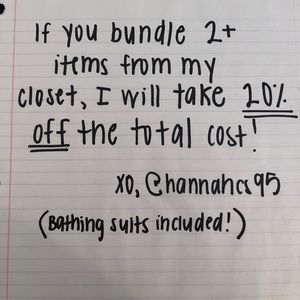 If you bundle 2+
items from my
closet, I will take 20%
off the total cost!
xo, @hannahcs95
(Bathing suits included!)